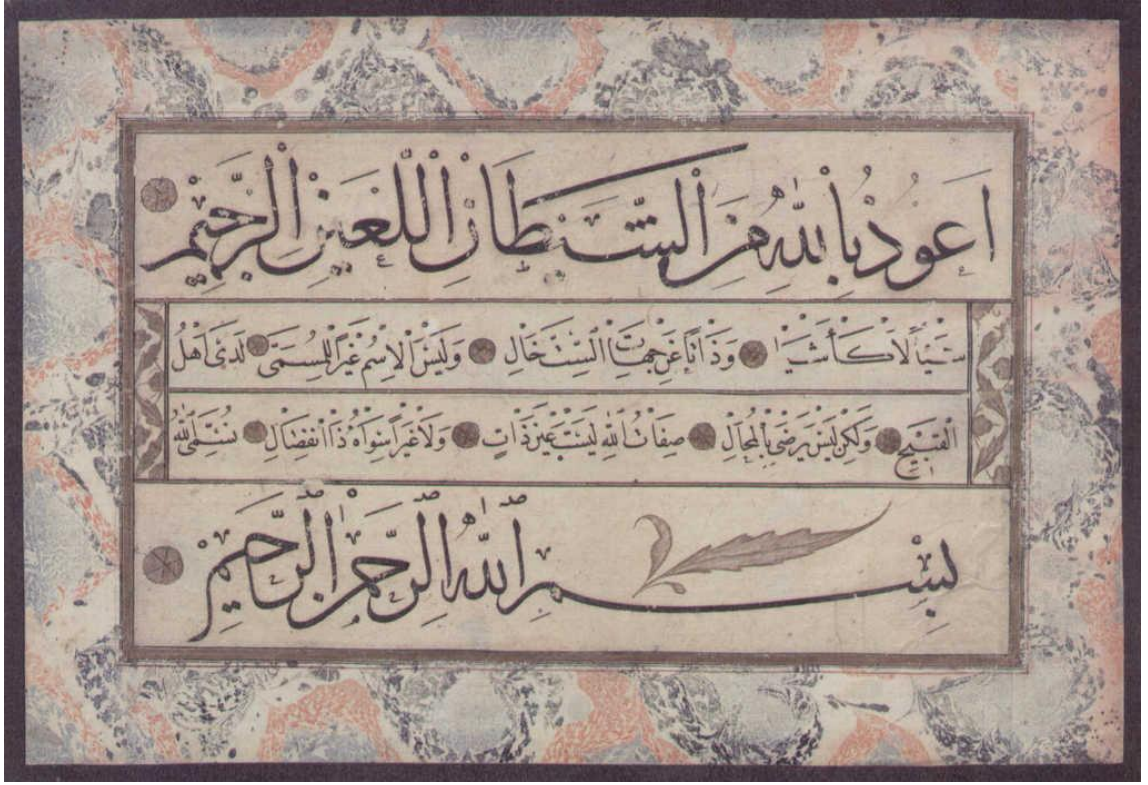 اعوذ بالله من الشيطان اللعين الرجيم
شيئا لا كأشيا وذاتا عن جهات الست خال وليس الاسم غيرا للمسمى لدى اهل
القبيح ولكن ليس يرضى بالمحال صفات الله ليست عين ذات ولا غيرا سواه ذا انفصال نسمى الله
بسم الله الرحمن الرحيم